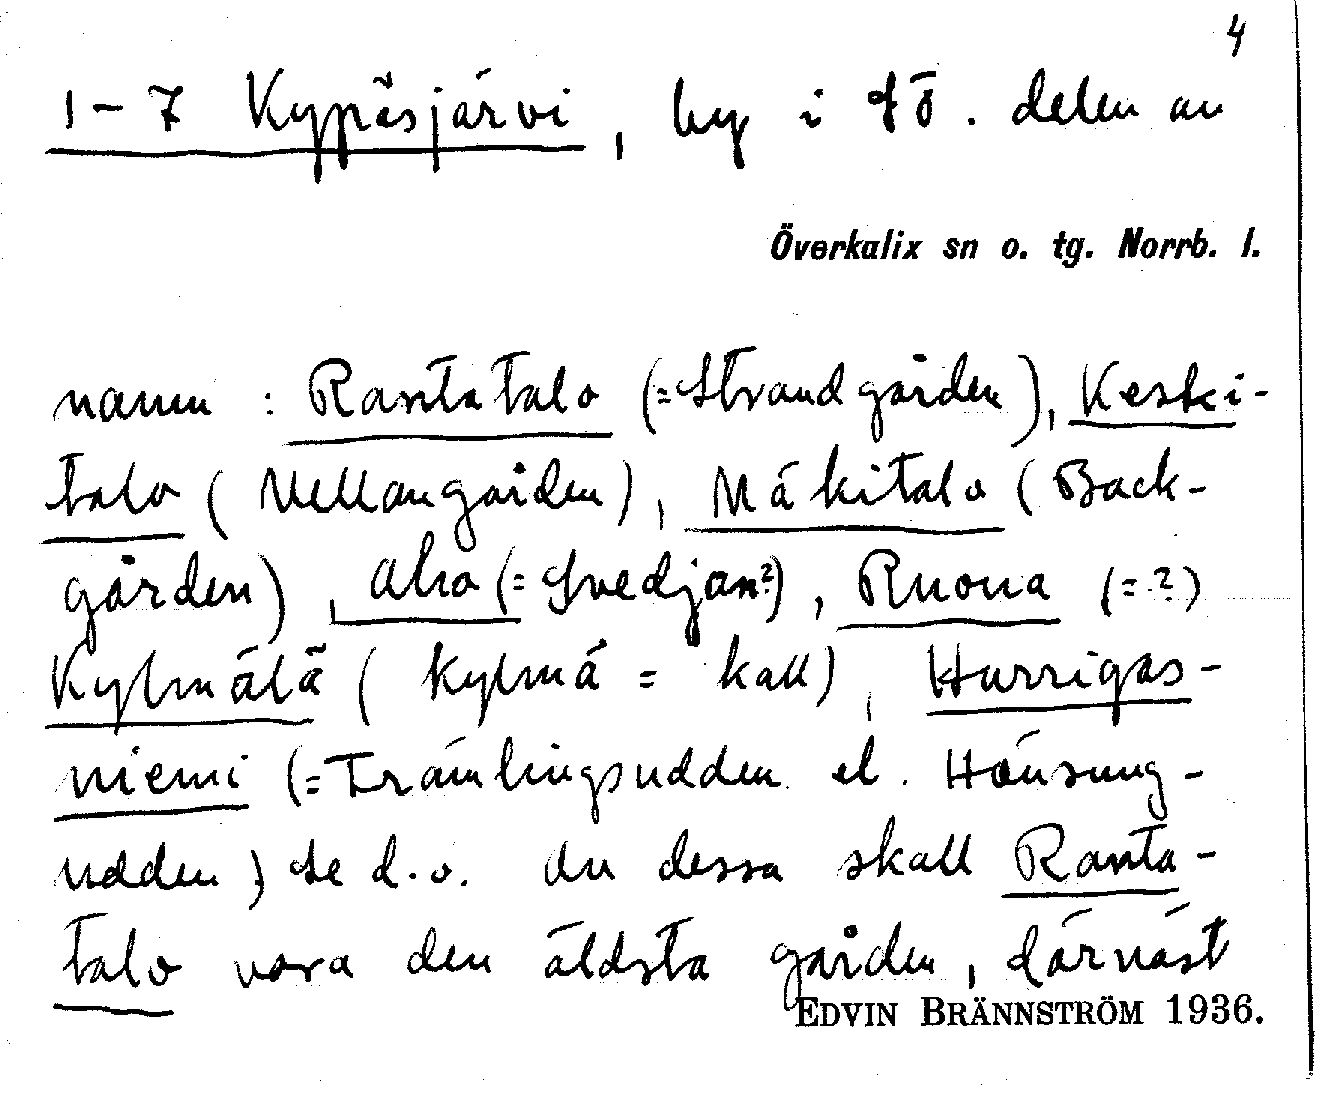 4
1-7 Kypäsjärvi, by i sö. delen av
Överkalix sn o. tg. Norrb. l.
namn: Rantatalo (=Strandgården), Keski-
talo (Mellangården), Mäkitalo (Back-
gården), Aho (=Svedjan?), Ruona (=?)
Kylmälä (kylmä = kall), Hurrigas-
niemi (=Främlingsudden el. Hänsung-
udden) se d.o. Av dessa skall Ranta-
talo vara den äldsta gården, därnäst
EDVIN BRÄNNSTRÖM 1936.